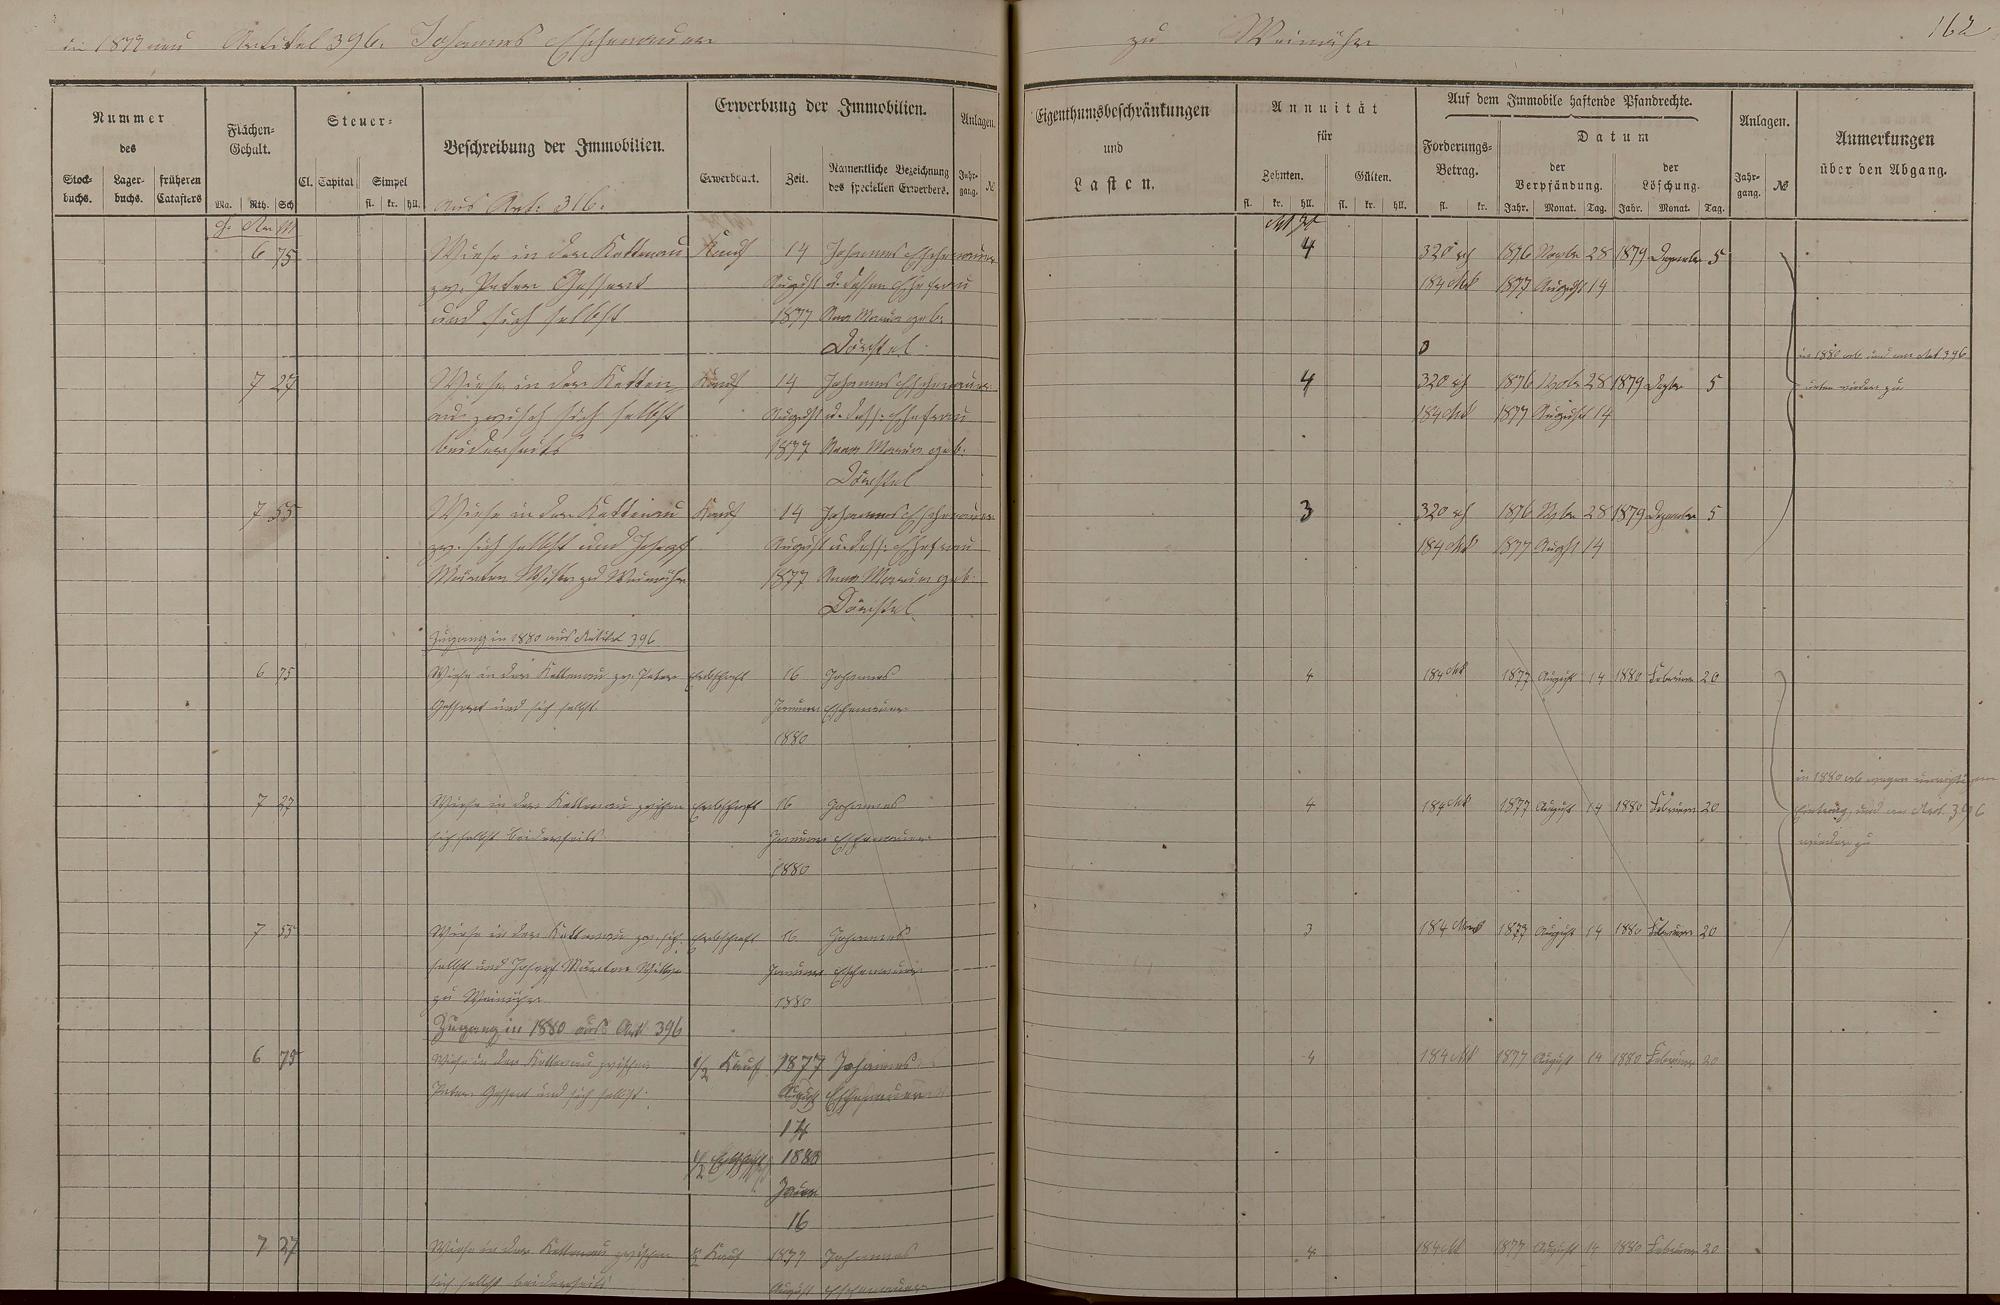 in 1877 neu Artikel 396. Johannes Eschenauer zu Weinähr 162
Nummer
des
Stock-
buchs.
Lager-
buchs.
früheren
Catasters
Flächen-
Gehalt.
Ma. Rth. Sch
Steuer-
Cl. Capital Simpel
fl. kr. hll.
Beschreibung der Immobilien.
aus Art: 316.
Erwerbung der Immobilien.
Erwerbsart. Zeit.
Namentliche Bezeichnung
des speciellen Erwerbers.
Anlagen.
Jahr-
gang. №
Eigenthumsbeschränkungen
und
Lasten.
Annuität
für
Zehnten. Gülten.
fl. kr. hll. fl. kr. hll.
Auf dem Immobile haftende Pfandrechte.
Forderungs-
Betrag.
fl. kr.
Datum
der
Verpfändung.
Jahr. Monat. Tag.
der
Löschung.
Jahr. Monat. Tag.
Anlagen.
Jahr-
gang. №
Anmerkungen
über den Abgang.
6 75 Wiese in der Kattenau Kauf 14 Johannes Eschenauer 4 320 1876 Novbr 28 1879 Dezember 5
zw. Peter Gessert August u. dessen Ehefrau 184 Mk 1877 August 14
und sich selbst 1877 Anna Maria geb.
Dörstel
in 1880 ab und am Art 396
7 27 Wiese in der Katten Kauf 14 Johannes Eschenauer 4 320 1876 Novbr 28 1879 Dezbr 5 unten wieder zu
au zwisch sich selbst August u. dess. Ehefrau 184 Mk 1877 August 14
beiderseits 1877 Anna Maria geb.
Dörstel
7 55 Wiese in der Kattenau Kauf 14 Johannes Eschenauer 3 320 1876 Nvbr 28 1879 Dezember 5
zw. sich selbst und Josef August u. dess. Ehefrau 184 Mk 1877 August 14
Wttw. zu Weinähr 1877 Anna Maria geb.
Dörstel
Zugang in 1880 aus Artikel 396
6 75 Wiese in der Kattenau zw. Peter Erbschaft 16 Johannes 4 184 Mk 1877 August 14 1880 Februar 20
Gessert und sich selbst. Januar Eschenauer
1880
in 1880 ab wegen
7 27 Wiese in der Kattenau zwischen Erbschaft 16 Johannes 4 184 Mk 1877 August 14 1880 Februar 20 Eintrag, und am Art. 396
sich selbst beiderseits Januar Eschenauer wieder zu
1880
7 55 Wiese in der Kattenau zw. sich Erbschaft 16 Johannes 3 184 Mk 1877 August 14 1880 Februar 20
selbst und Josef Januar Eschenauer
zu Weinähr 1880
Zugang in 1880 aus Art 396
6 75 Wiese in der Kattenau zwischen 1/2 Kauf 1877 Johannes 4 184 Mk 1877 August 14 1880 Februar 20
Peter Gessert und sich selbst. August Eschenauer
14
1/2 Erbschaft 1880
Januar
16
7 27 Wiese in der Kattenau zwischen 1/2 Kauf 1877 Johannes 4 184 Mk 1877 August 14 1880 Februar 20
sich selbst beiderseits August Eschenauer